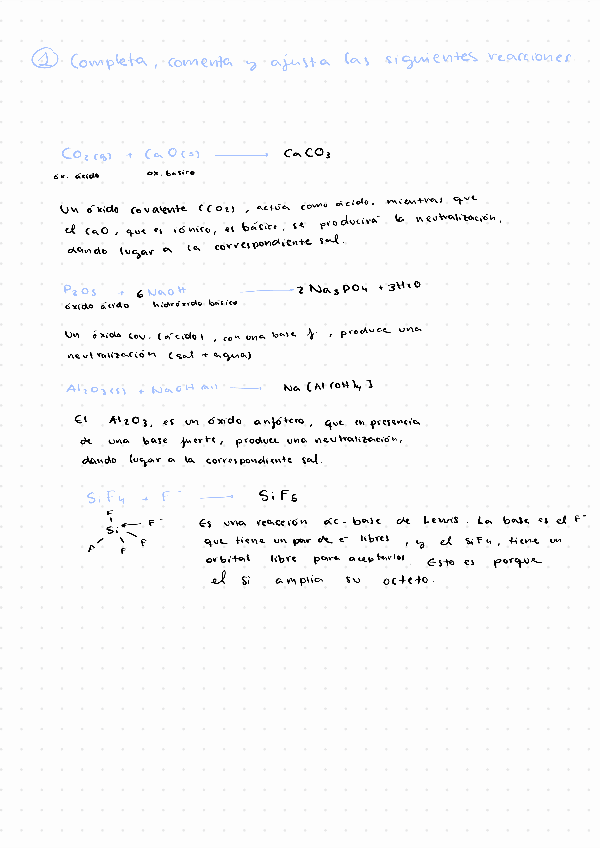 ① Completa, comenta y ajusta las siguientes reacciones
CO2(g) + CaO(s) → CaCO3
óx. ácido ox. basico
Un óxido covalente (CO2), actúa como ácido. mientras que
el CaO, que es iónico, es básico, se producirá la neutralización,
dando lugar a la correspondiente sal.
P2O5 + 6 NaOH → 2 Na3PO4 + 3H2O
óxido ácido hidróxido básico
Un óxido cov. (ácido), con una base f., produce una
neutralización (sal + agua)
Al2O3(s) + NaOH → Na[Al(OH)4]
El Al2O3, es un óxido anfótero, que en presencia
de una base fuerte, produce una neutralización,
dando lugar a la correspondiente sal.
SiF4 + F⁻ → SiF5
F
Si ← F⁻
F F F
Es una reacción ác-base de Lewis. La base es el F⁻
que tiene un par de e⁻ libres, y el SiF4, tiene un
orbital libre para aceptarlos. Esto es porque
el Si amplia su octeto.